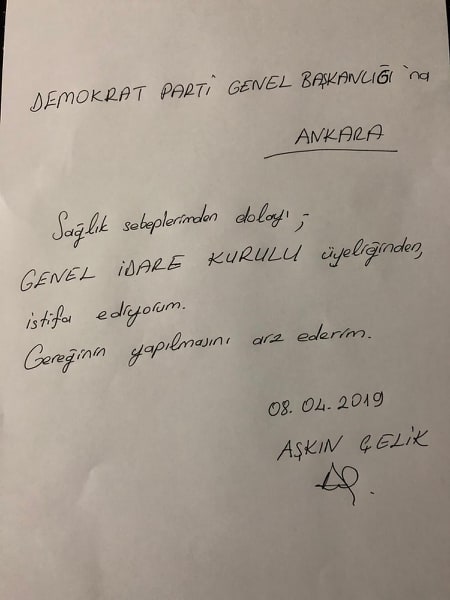 DEMOKRAT PARTİ GENEL BAŞKANLIĞI'na
ANKARA
Sağlık sebeplerimden dolayı,-
GENEL İDARE KURULU üyeliğinden,
istifa ediyorum.
Gereğinin yapılmasını arz ederim.
08.04.2019
AŞKIN ÇELİK